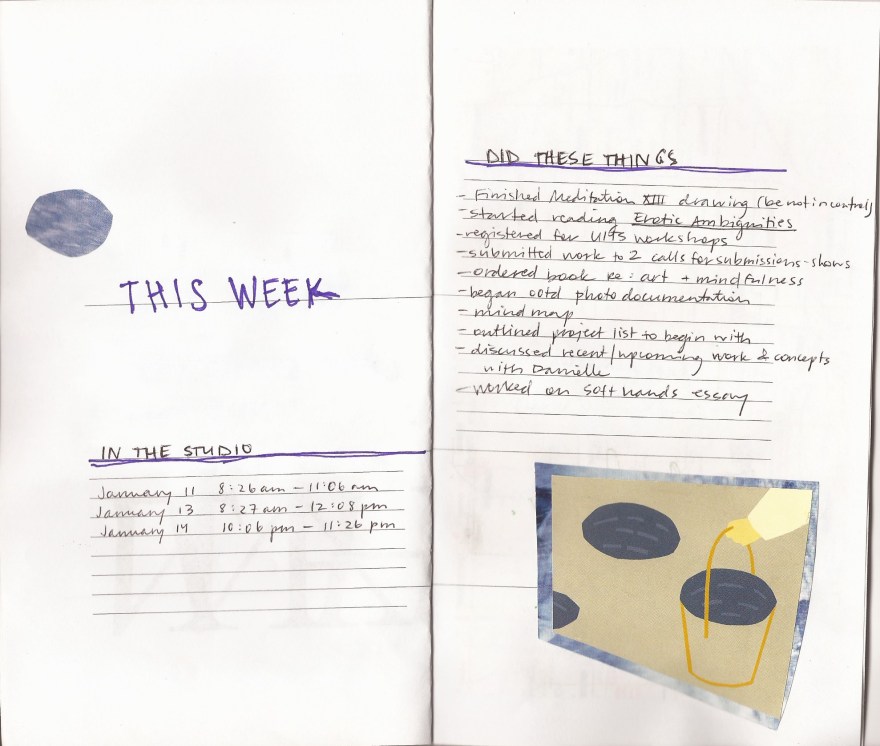 THIS WEEK
IN THE STUDIO
January 11 8:26 am - 11:06 am
January 13 8:27 am - 12:08 pm
January 14 10:06 pm - 11:26 pm
DID THESE THINGS
- Finished Meditation XIII drawing (be not in control)
- started reading Erotic Ambiguities
- registered for workshops
- submitted work to 2 calls for submissions - shows
- ordered book re: art + mindfulness
- began ootd photo documentation
- mind map
- outlined project list to begin with
- discussed recent/upcoming work & concepts
with Danielle
- worked on soft hands essay